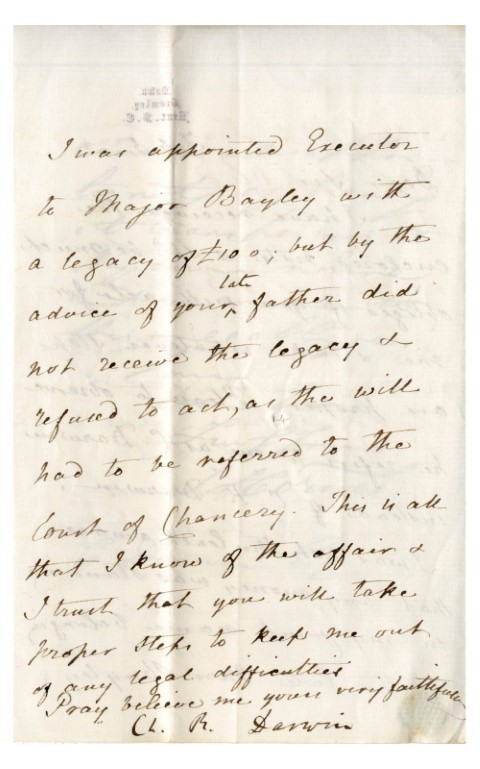 I was appointed Executor
to Major Bayley with
a legacy of £100; but by the
late
advice of your ^ father did
not receive the legacy &
refused to act, as the will
had to be referred to the
Court of Chancery. This is all
that I know of the affair &
I trust that you will take
proper steps to keep me out
of any legal difficulties
Pray believe me yours very faithfully
Ch. R. Darwin